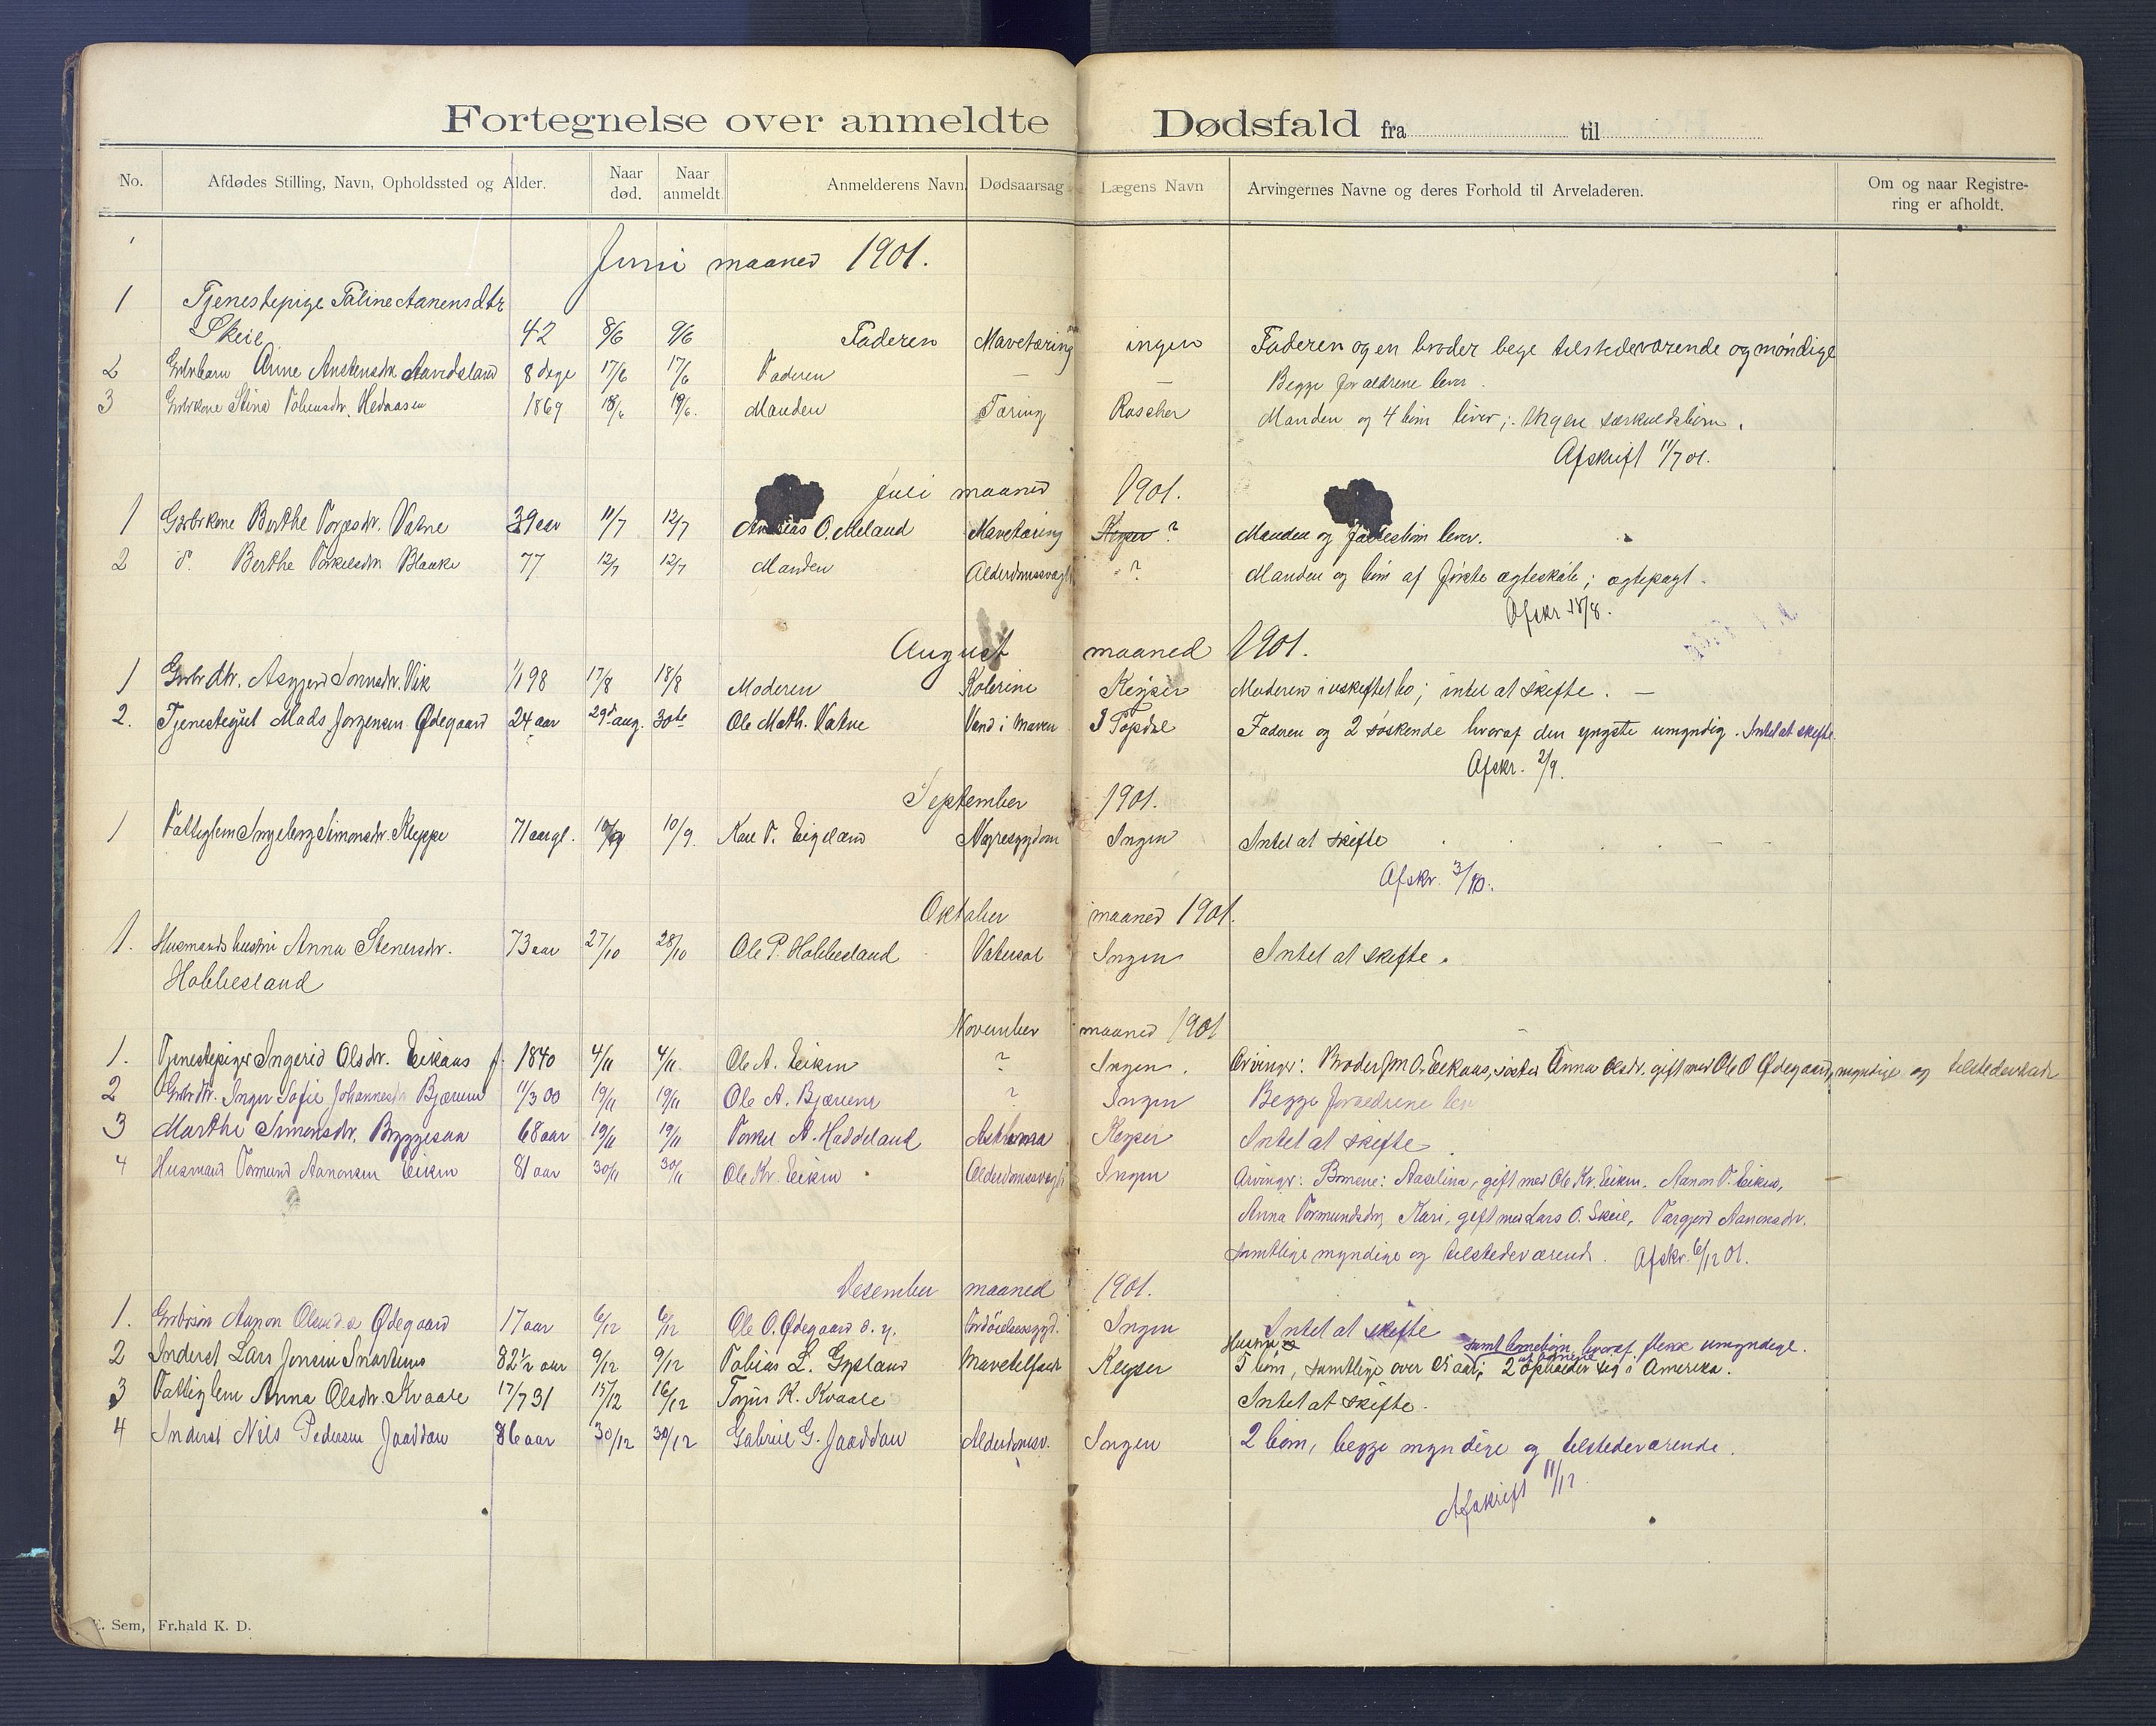 Fortegnelse over anmeldte Dødsfald fra til
No. Afdødes Stilling, Navn, Opholdssted og Alder. Naar død. Naar anmeldt Anmelderens Navn. Dødsaarsag Lægens Navn Arvingernes Navne og deres Forhold til Arveladeren. Om og naar Registrering er afholdt.
Juni maaned 1901.
1 Tjenestepige Taline Aanensdtr
Skeie 42 8/6 9/6 Faderen Mavetæring ingen Faderen og en broder bege tilstedeværende og møndige
2 Grbrbarn Anne Anstensdtr 8 dage 17/6 17/6 Faderen — — Begge forældrene lever.
3 Grbrkone Stina 1869 18/6 19/6. Manden Tæring Roscher Manden og 4 børn lever; Ingen særkuldsbørn.
Afskrift 11/7 01.
Juli maaned 1901.
1 Gbrkone Berthe Torjesdr. Vatne 39 aar 11/7 12/7 O. Meland Mavetæring Keyser ? Manden og fællesbørn lever.
2 d. Berthe Torkelsdtr Blaake 77 12/7 12/7 Manden Alderdomssvagh ? Manden og børn af første ægteskab; ægtepagt.
Afskr 15/8.
August maaned 1901.
1 Grbrdtr. Asgjerd Tonnesdr. Vik 1/1 98 17/8 18/8 Moderen Kolerine Keyser Moderen i uskiftet bo; intet at skifte. —
2. Tjenestegut Mads Jørgensen Ødegaard 24 aar 29d aug. 30te Ole Math. Vatne Vand i maven J Topdal Faderen og 2 søskende hvoraf den yngste umyndig. Intet at skifte.
Afskr. 2/9.
September 1901.
1 Fattiglem Ingeborg Simonsdr. Kleppe 71 aar gl. 10/9 10/9. Karl T. Eigeland Nyresygdom Ingen Intet at skifte
Afskr. 3/10.
Oktober maaned 1901.
1. Husmandshustru Anna Stenersdr. 73 aar 27/10 28/10 Ole P. Hobbesland Vatersot Ingen Intet at skifte.
Hobbesland
November maaned 1901
1. Tjenestepige Ingerid Olsdr. Eikaas f. 1840 4/11 4/11 Ole A. Eiken ? Ingen. Arvinger: Broder O. Eekaas, søster Anna Olsdr. gift med Ole O Ødegaard, myndige og tilstedevær
2 Grbrdtr. Inger Sofie Johannesdr Bjærum 11/3 00 19/11 19/11 Ole A. Bjærum ? Ingen Begge forældrene lev
3 Marthe Simonsdr. Byggesaa 68 aar 19/11 19/11 Torkel A. Haddeland Asthma Keyser Intet at skifte.
4 Husmand Tormund Aanonsen Eiken 81 aar 30/11 30/11 Ole Kr. Eiken Alderdomssvagh Ingen Arvinger: Børnene: Aaselina, gift med Ole Kr. Eiken. Aanon T. Eiken,
Anna Tormundsdr, Kari, gift med Lars O. Skeie, Targjerd Aanensdr.
samtlige myndige og tilstedeværend. Afskr. 6/12 01.
Desember maaned 1901.
1. Grbrsøn Aanon Olsen Ødegaard 17 aar 6/12 6/12 Ole O. Ødegaard d. y. Fordøielsessygd. Ingen Intet at skifte
2 Inderst Lars Jensen Snartemo 82 1/2 aar 9/12 9/12 Tobias L. Gysland Keyser Hustru samt børnebørn, hvoraf flere umyndige.
5 børn, samtlige over 25 aar; 2 af børnene opholder sig i Amerika.
3 Fattiglem Anna Olsdr. Kvaale 17/7 31 15/12 16/12 Torjus K. Kvaale Intet at skifte.
4 Inderst Nils Pedersen Jaaddan 86 aar 30/12 30/12 Gabriel G. Jaaddan Alderdomssv. Ingen 2 børn, begge myndige og tilstedeværende.
Afskrift 11/12
E. Sem, Fr.hald K. D.